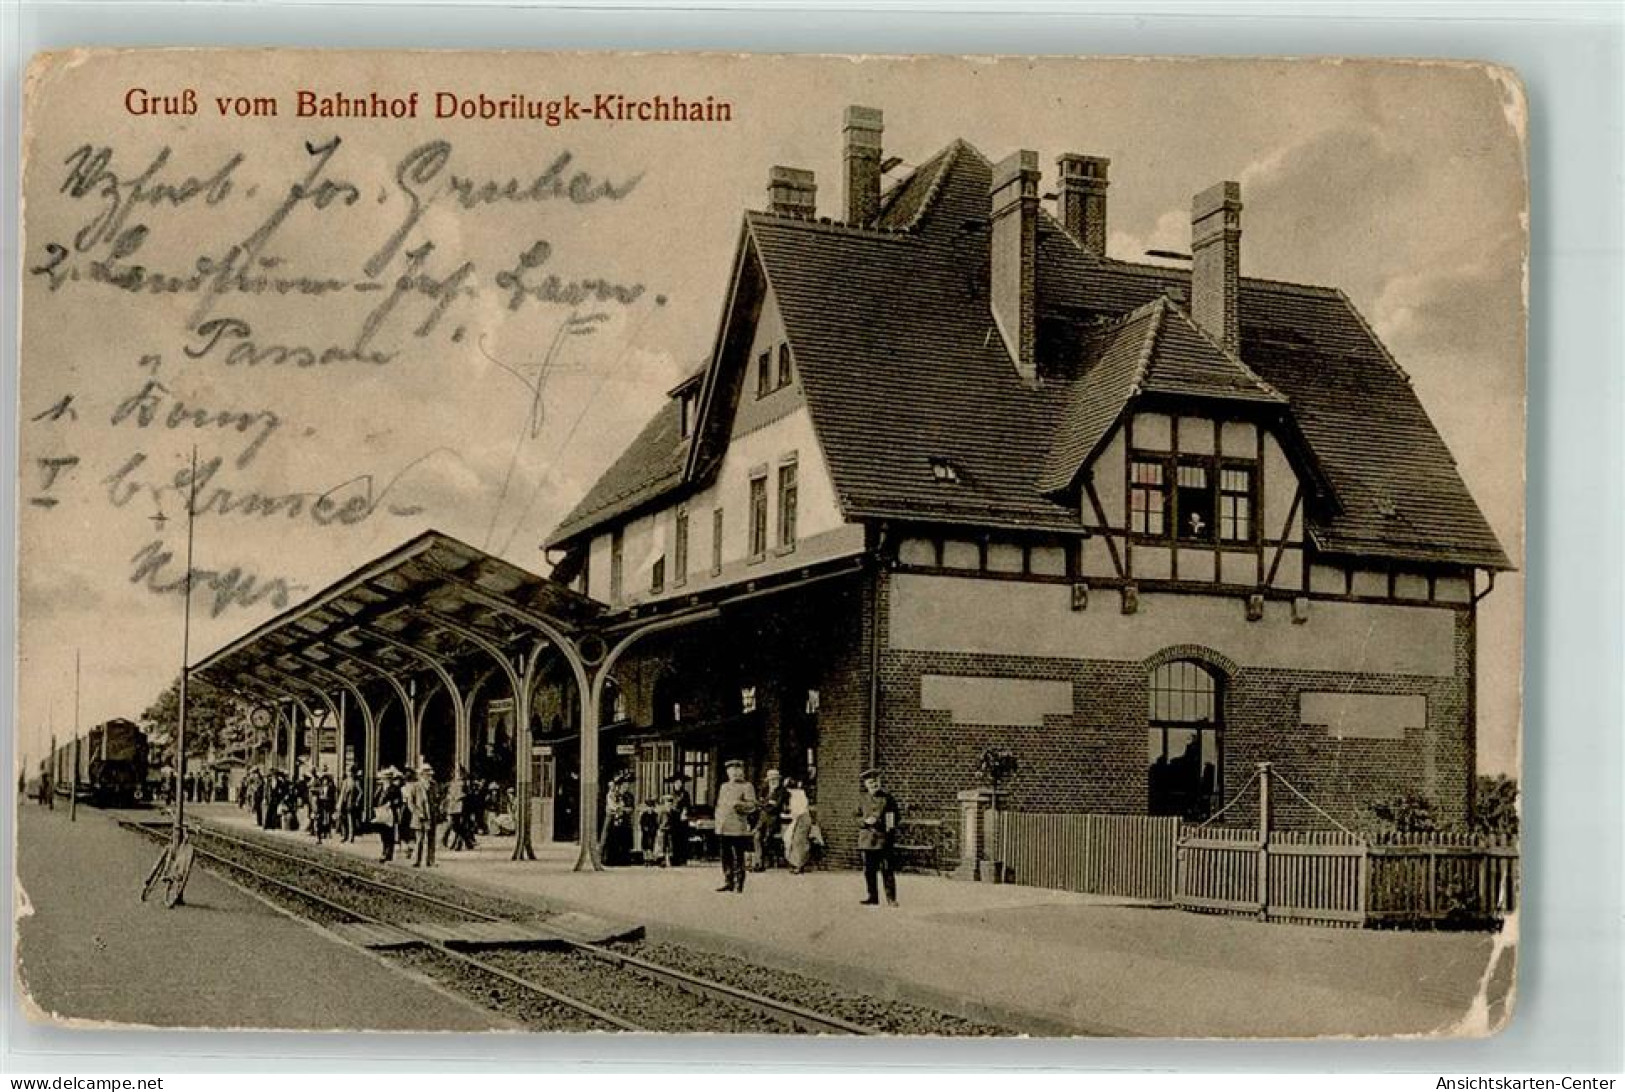 Gruß vom Bahnhof Dobrilugk-Kirchhain
Vzfwb. Jos. Gruber
2. Landsturm-Inf. Baon.
" Passau
1. Komp.
I b. Armee-
Korps
oldthing
Ansichtskarten-Center